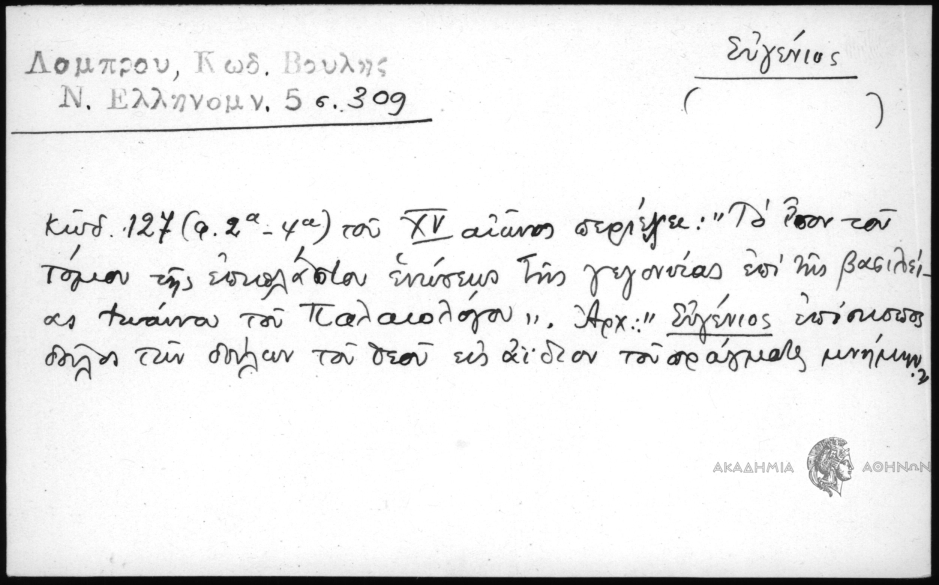 Λαμπρου, Κωδ. Βουλης
Ν. Ελληνομν. 5 σ. 309
Εὐγένιος
( )
κῶδ. 127 (φ. 2α - 4α) τοῦ XV αἰῶνος περιέχει: "Τὸ ἴσον τοῦ
τόμου τῆς ἐπιπλάστου ἑνώσεως τῆς γεγονυίας ἐπὶ τῆς βασιλεί-
ας Ἰωάννου τοῦ Παλαιολόγου". Ἀρχ.: "Εὐγένιος ἐπίσκοπος
δοῦλος τῶν δούλων τοῦ θεοῦ εἰς ἀΐδιον τοῦ πράγματος μνήμην."
ΑΚΑΔΗΜΙΑ ΑΘΗΝΩΝ